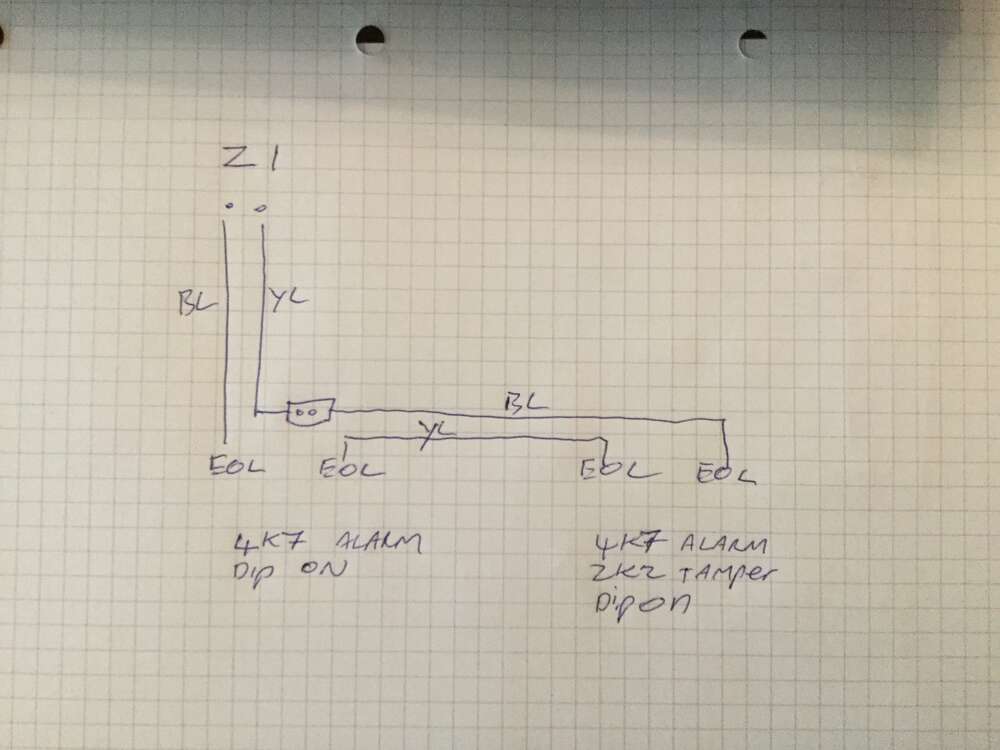 Z 1
BL YL
BL
YL
EOL EOL EOL EOL
4K7 ALARM
Dip ON
4K7 ALARM
2K2 TAMPer
Dip ON